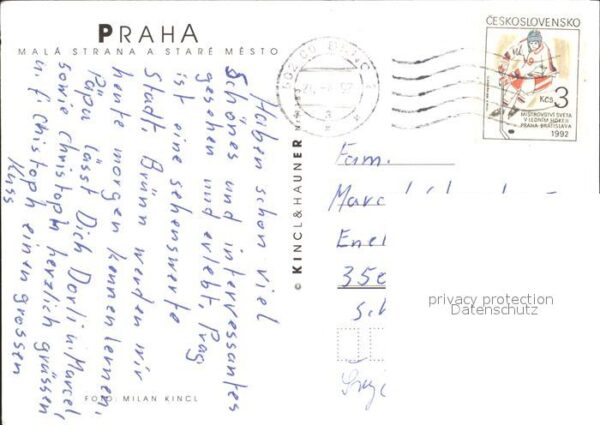 PRAHA
MALÁ STRANA A STARÉ MĚSTO
Haben schon viel
Schönes und interressantes
gesehen und erlebt. Prag
ist eine sehenswerte
Stadt. Brünn werden wir
heute morgen kennenlernen.
Papa lässt Dich Dorli u. Marcel,
sowie Christoph herzlich grüssen
u. f. Christoph einen grossen
Kuss
FOTO: MILAN KINCL
© KINCL&HAUNER
ČESKOSLOVENSKO
Kčs 3
MISTROVSTVÍ SVĚTA
V LEDNÍM HOKEJI
PRAHA-BRATISLAVA
1992
Fam.
privacy protection
Datenschutz